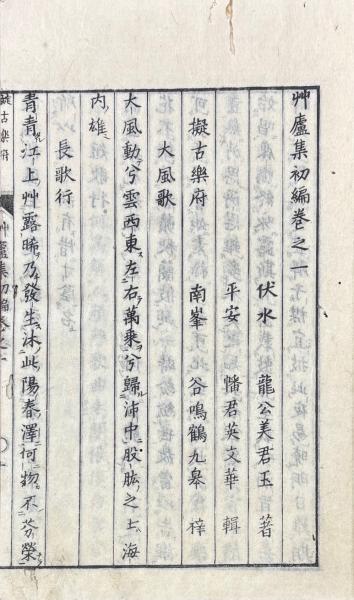 艸廬集初編卷之一
伏水 龍公美君玉 著
平安 幡君英文華 輯
南峯 谷鳴鶴九皋 梓
擬古樂府
大風歌
大風動兮雲西東左右萬乘兮歸沛中股肱之士海
内雄
長歌行
青青江上艸露晞乃發生沐此陽春澤何物不芬榮
擬古樂府
艸廬集初編卷之一